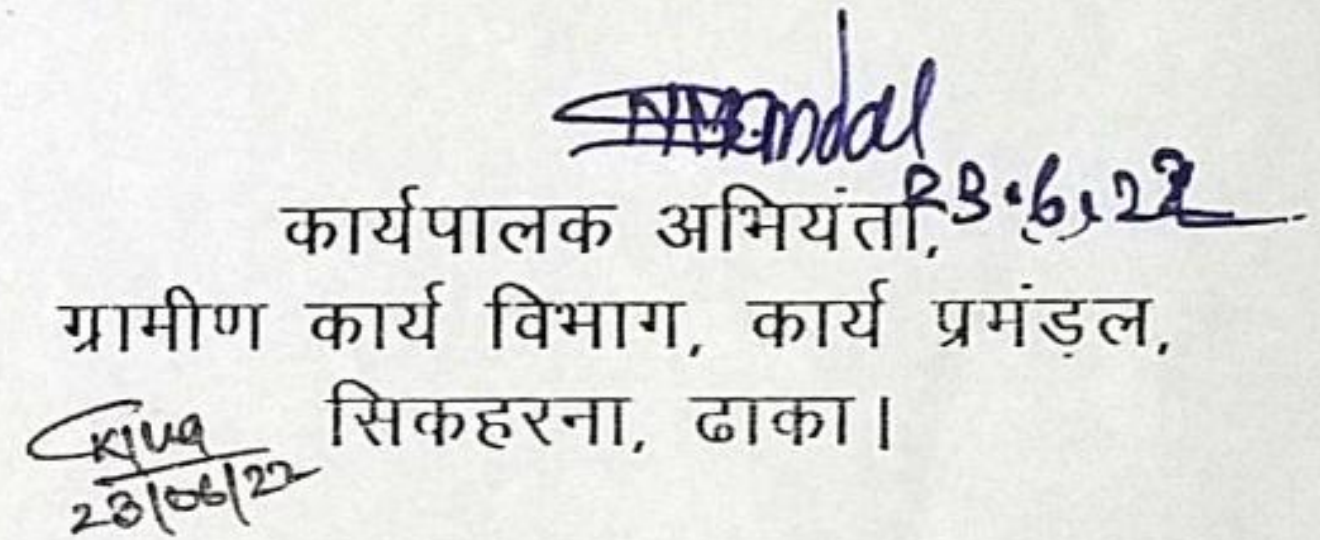 23.6.22
कार्यपालक अभियंता,
ग्रामीण कार्य विभाग, कार्य प्रमंड़ल,
सिकहरना, ढाका।
23/06/22